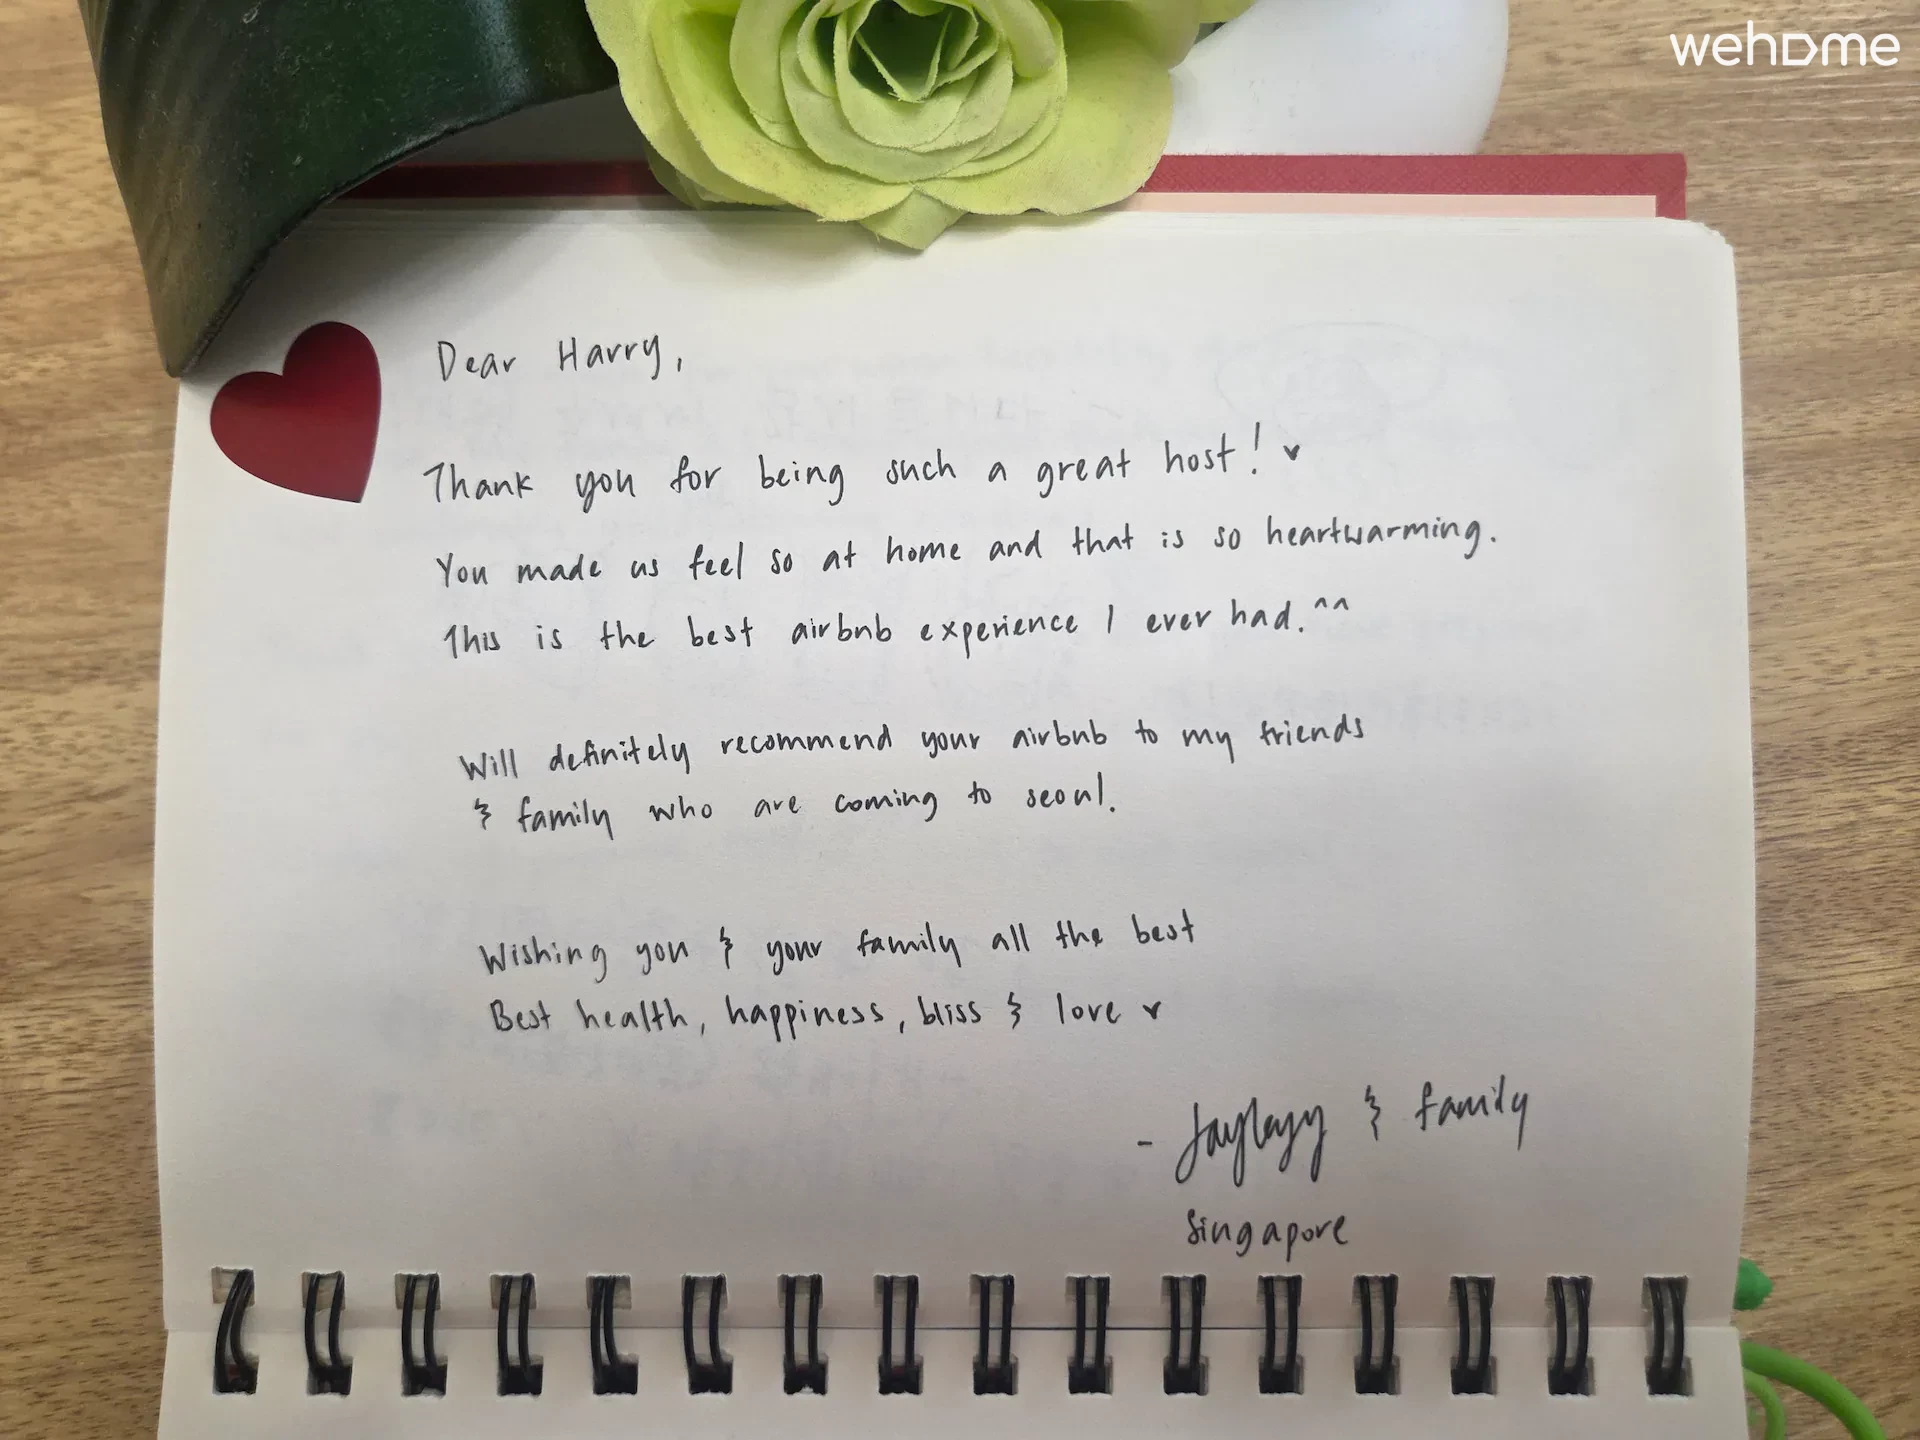 wehome
Dear Harry,
Thank you for being such a great host! ♥
You made us feel so at home and that is so heartwarming.
This is the best airbnb experience I ever had.^^
Will definitely recommend your airbnb to my friends
& family who are coming to seoul.
Wishing you & your family all the best
Best health, happiness, bliss & love ♥
- & family
Singapore